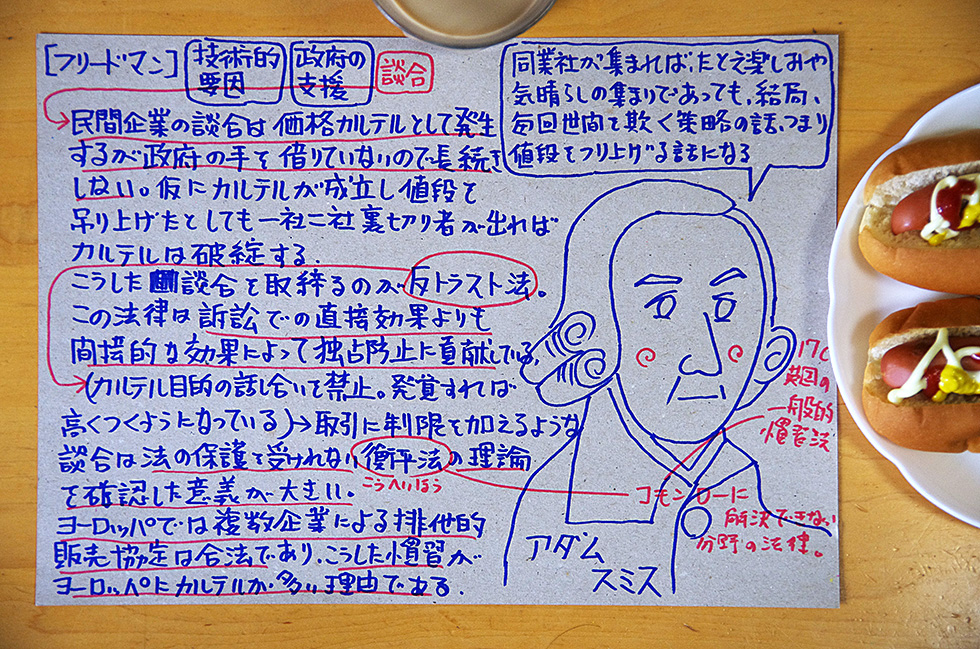 [フリードマン] 技術的要因 政府の支援 談合
民間企業の談合は価格カルテルとして発生
するが政府の手を借りていないので長続き
しない。仮にカルテルが成立し値段を
吊り上げたとしても一社二社裏切り者が出れば
カルテルは破綻する.
こうした談合を取締るのが反トラスト法。
この法律は訴訟での直接効果よりも
間接的な効果によって独占防止に貢献している,
(カルテル目的の話し合いを禁止。発覚すれば
高くつくようになっている)→取引に制限を加えるような
談合は法の保護を受けれない衡平法の理論
こうへいほう
を確認した意義が大きい。
ヨーロッパでは複数企業による排他的
販売協定は合法であり、こうした慣習が
ヨーロッパにカルテルが多い理由である.
同業社が集まれば、たとえ楽しみや
気晴らしの集まりであっても、結局、
毎回世間を欺く策略の話、つまり
値段をつり上げる話になる
17C
英国の
一般的
慣習法
コモンローに
解決できない
分野の法律。
アダム
スミス